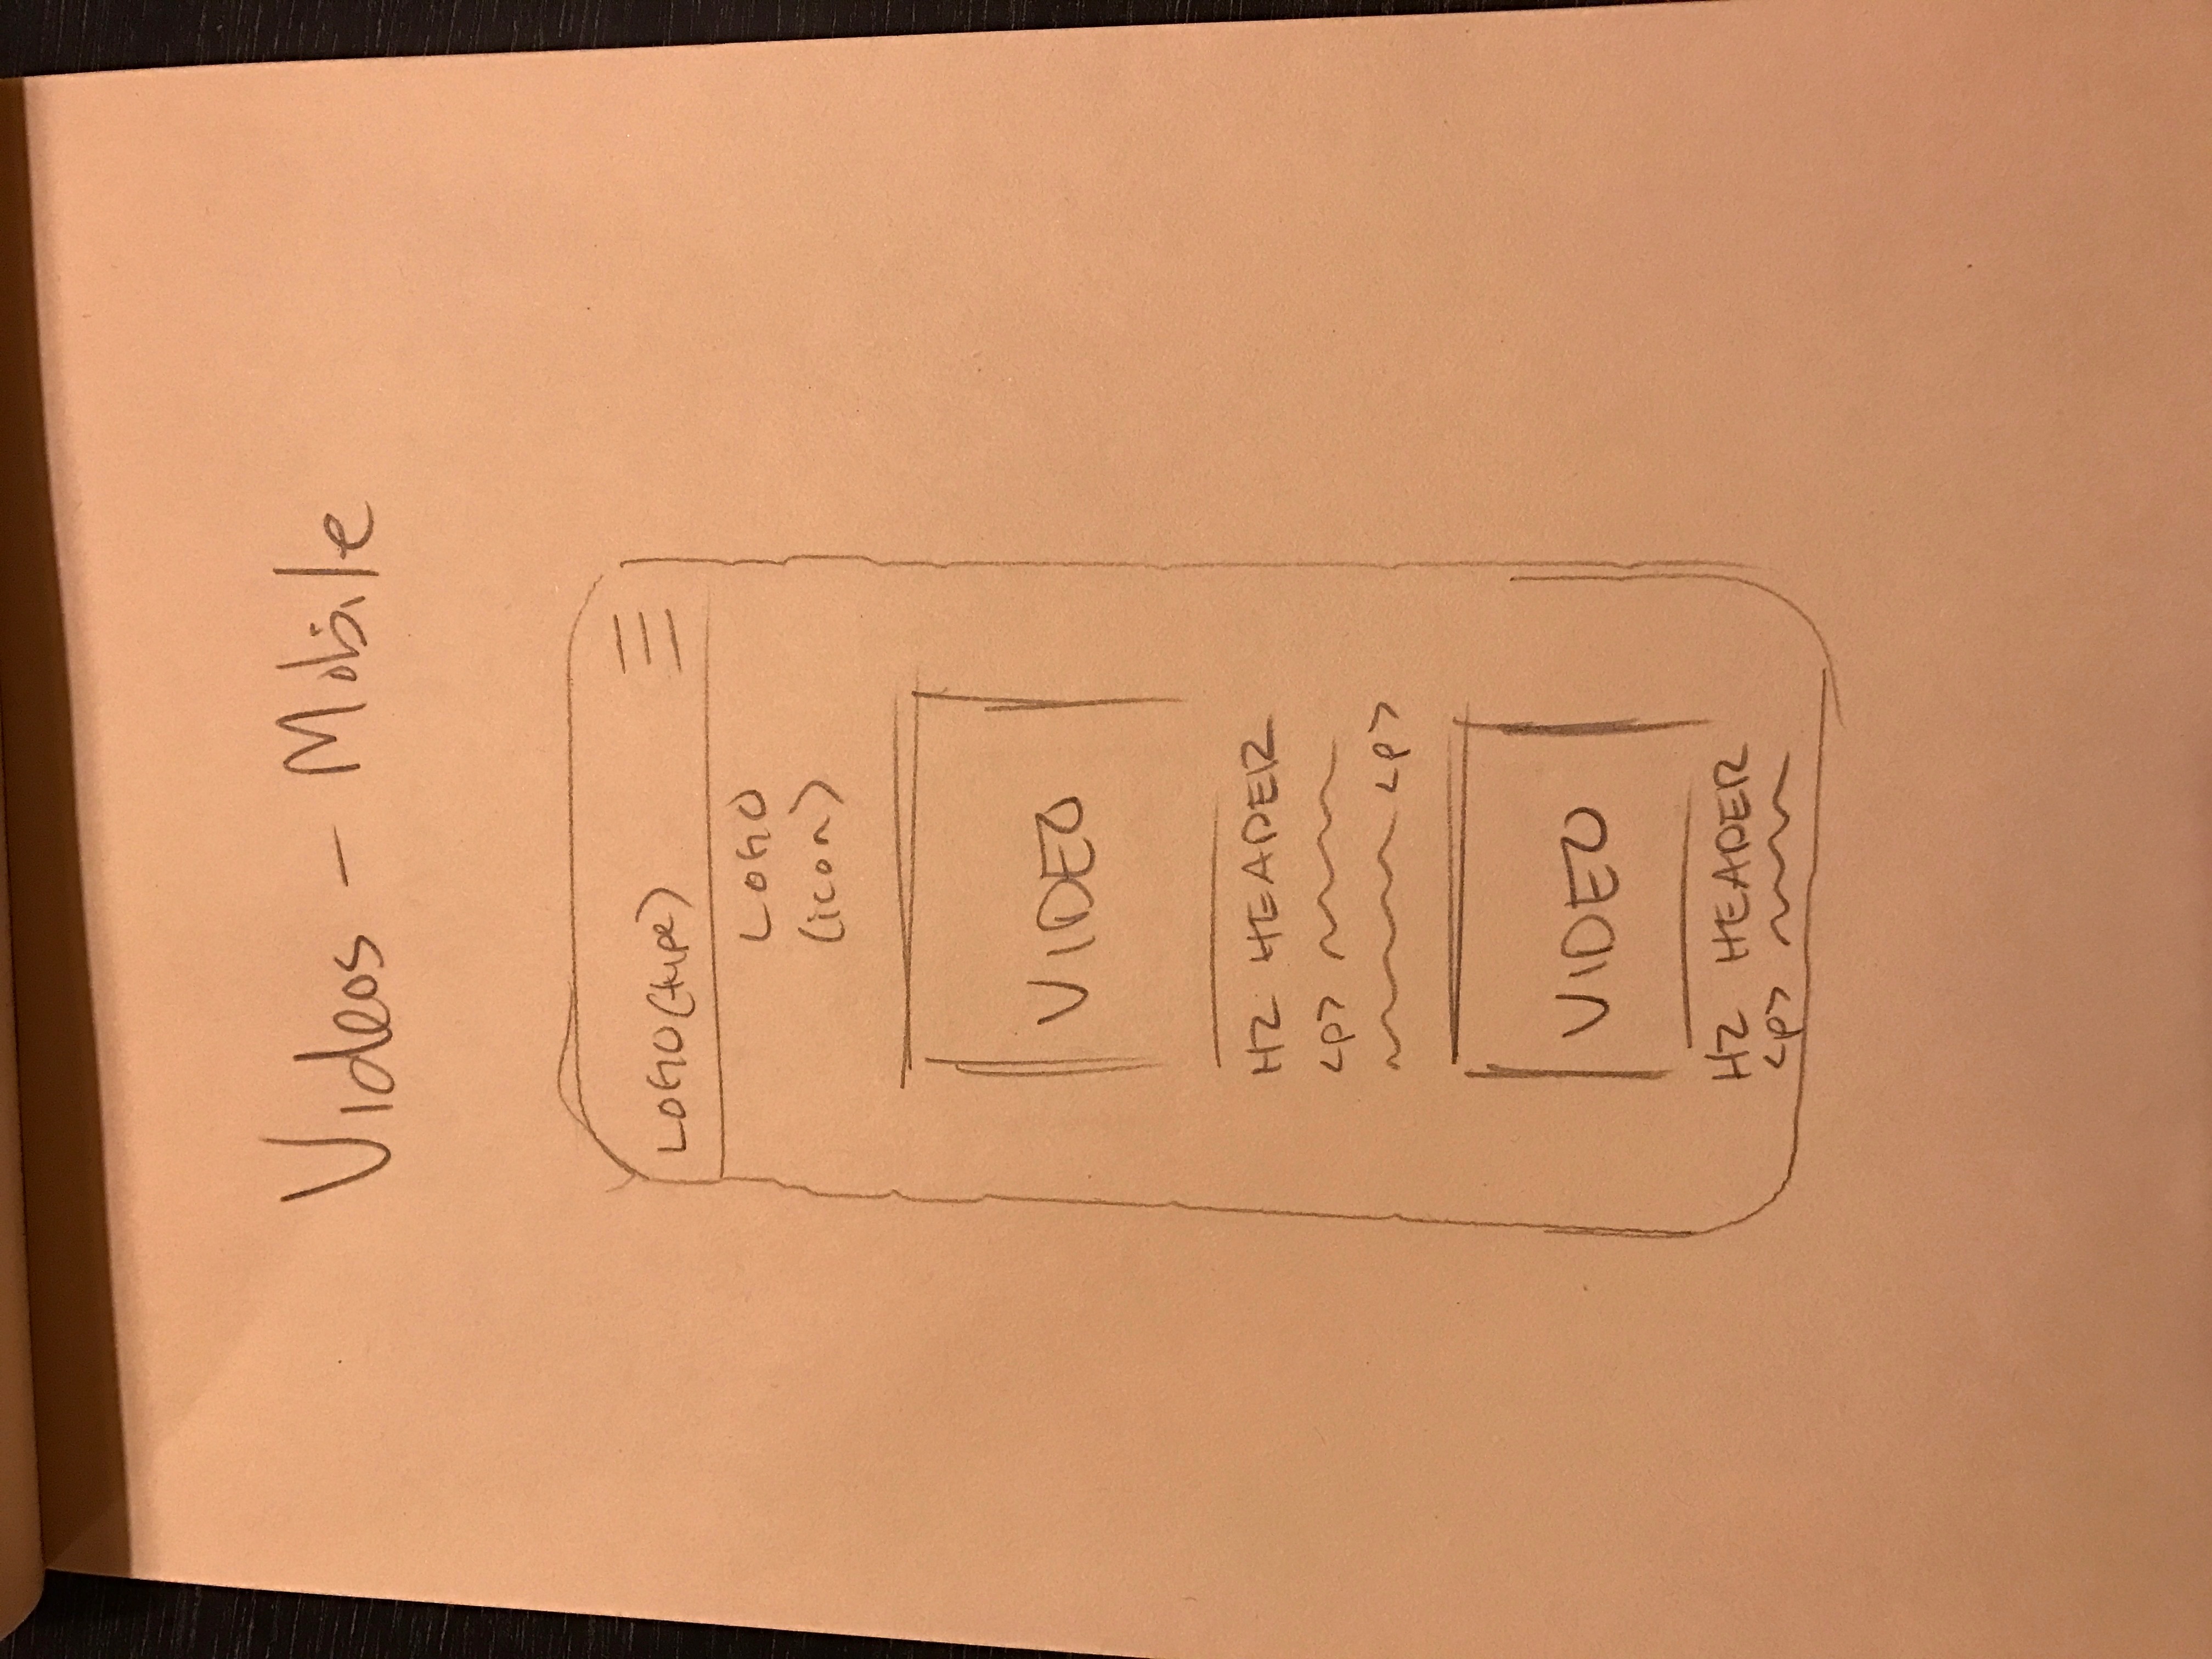 Videos - Mobile
LOGO (type)
LOGO
(icon)
VIDEO
H2 HEADER
<p>
<p>
VIDEO
H2 HEADER
<p>